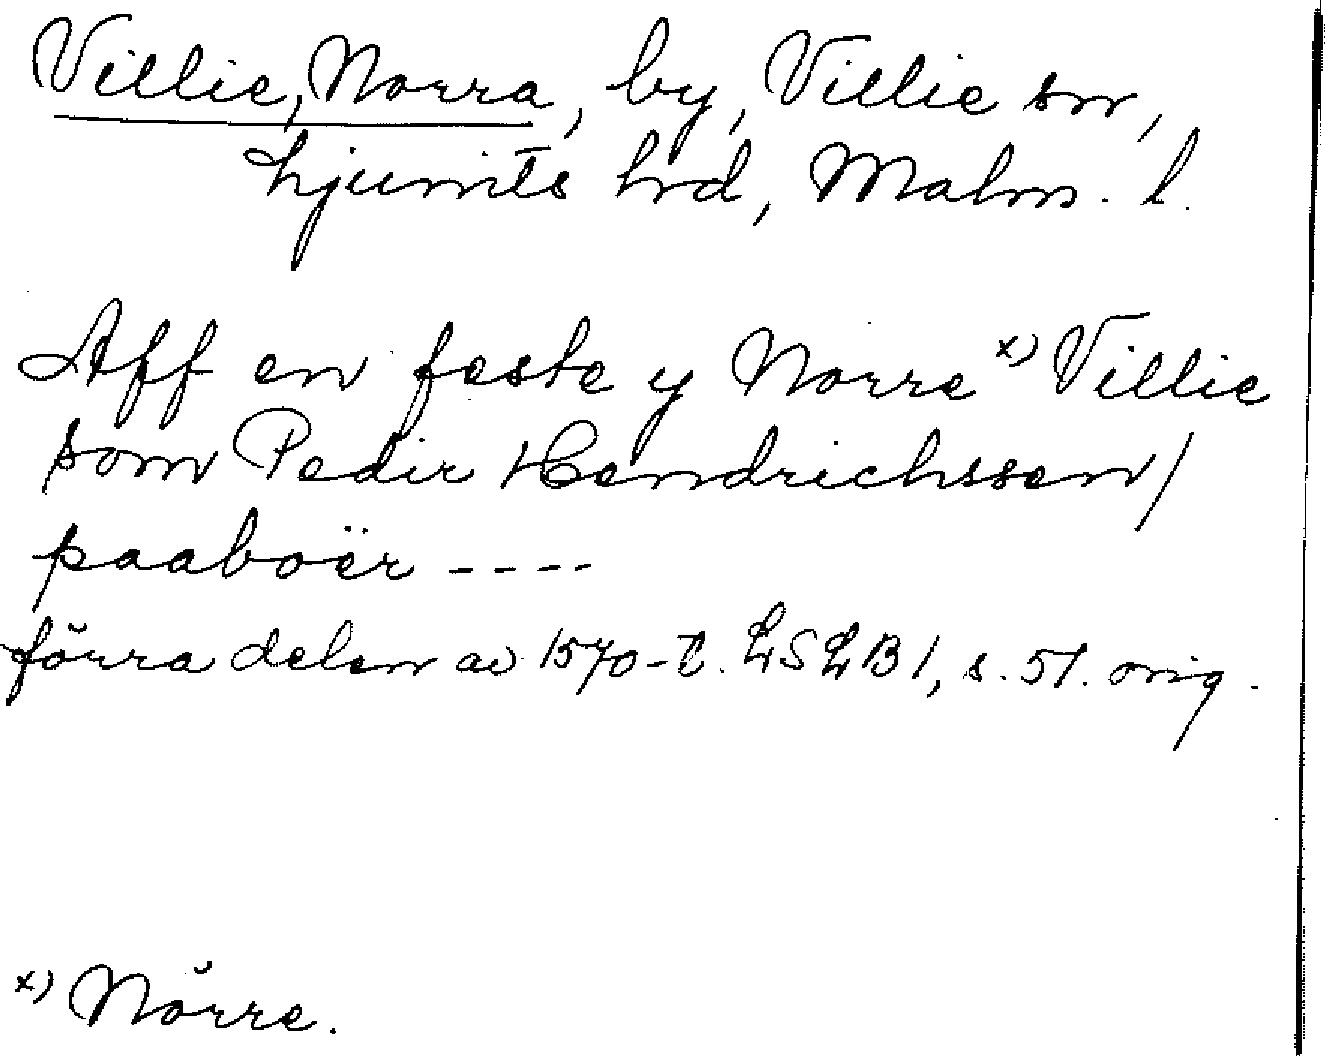 Villie, Norra, by, Villie sn,
Ljunits hrd, Malm. l.
Aff en feste y Norre x) Villie
som Pedir Hendrichssen/
paaboër ----
förra delen av 1570-t. LSLB 1, s. 51. orig.
x) Nörre.